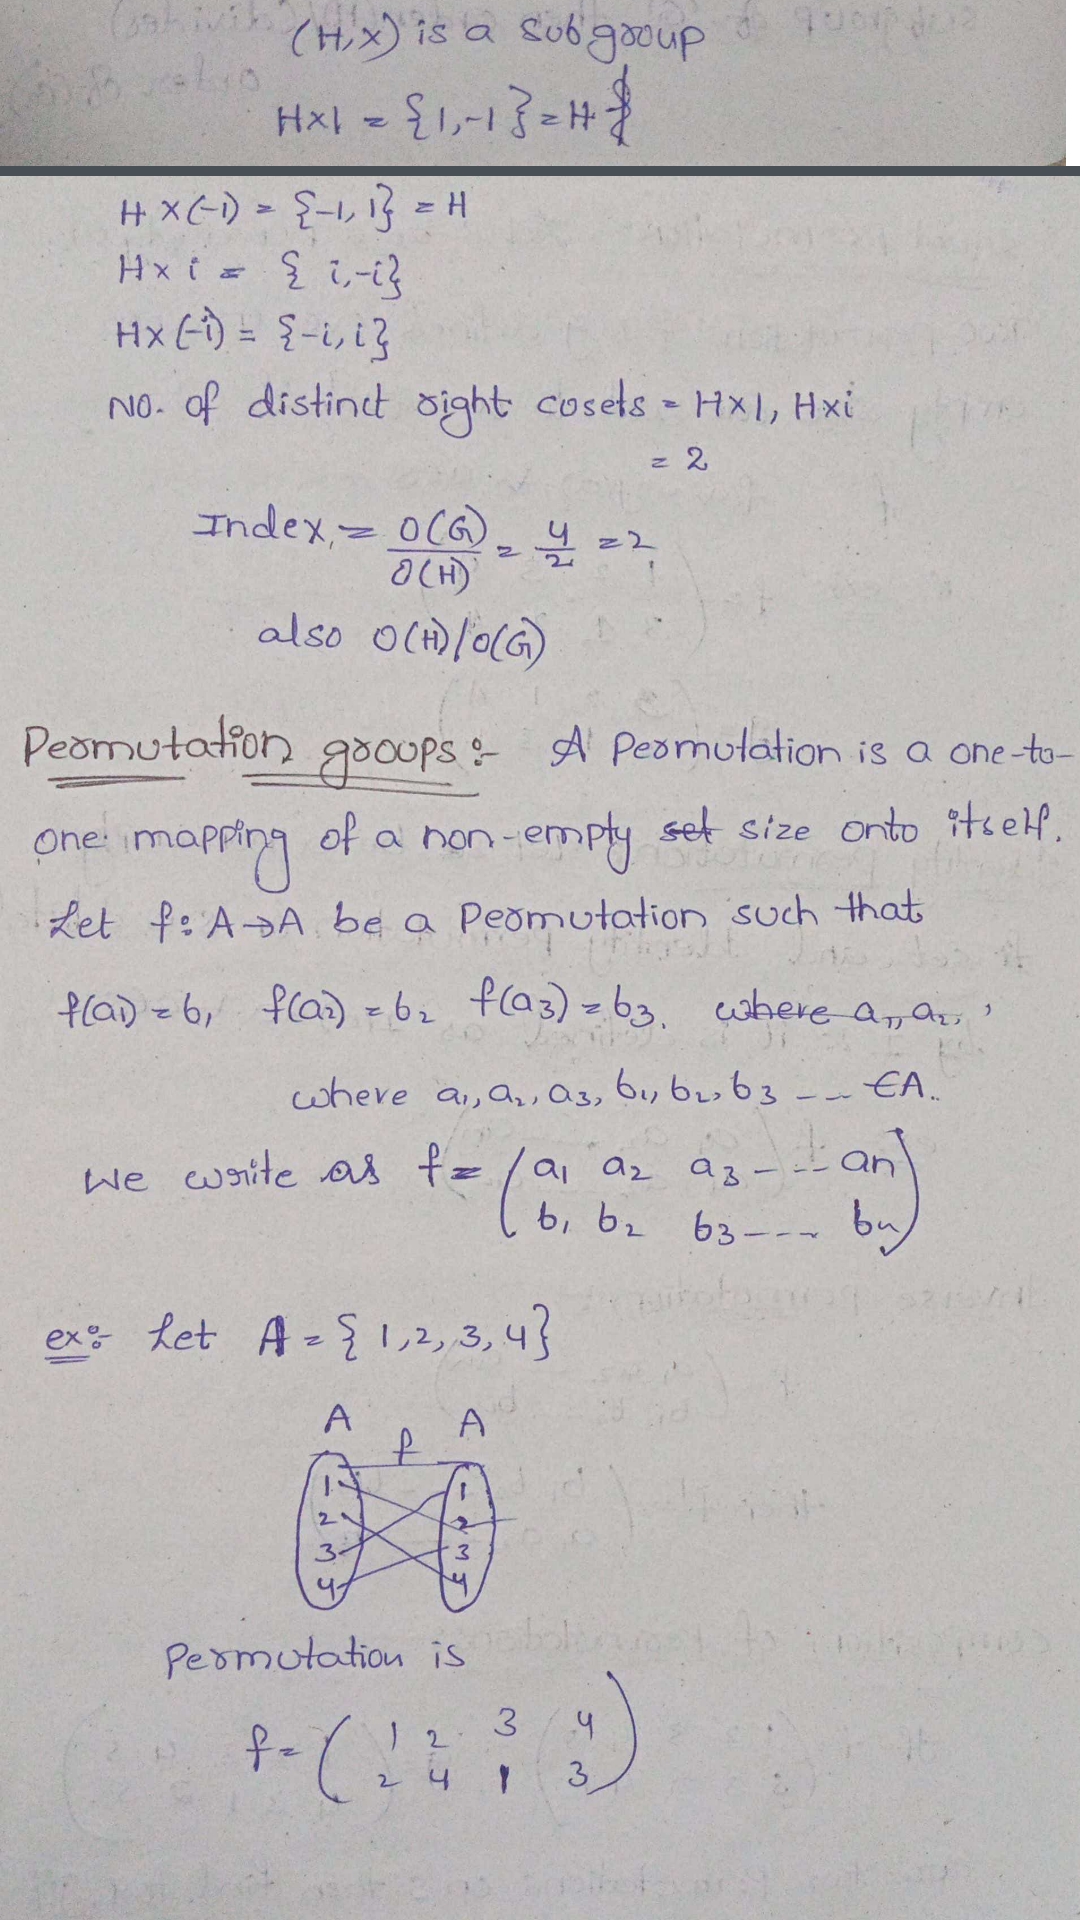 (H,×) is a subgroup
H×1 = {1,-1} = H
H×(-1) = {-1, 1} = H
H×i = { i,-i}
H×(-i) = {-i, i}
NO. of distinct right cosets = H×1, H×i
= 2
Index = O(G)/O(H) = 4/2 = 2
also O(H)/O(G)
Permutation groups :- A Permutation is a one-to-
one mapping of a non-empty set size onto itself.
Let f: A→A be a Permutation such that
f(a1) = b1 f(a2) = b2 f(a3) = b3. where a1, a2, ,
where a1, a2, a3, b1, b2, b3 --- ∈A.
We write as f = ( a1 a2 a3 --- an
b1 b2 b3 ---- bn )
ex:- Let A = { 1,2,3,4}
A f A
1 1
2 2
3 3
4 4
Permutation is
f = ( 1 2 3 4
2 4 1 3 )